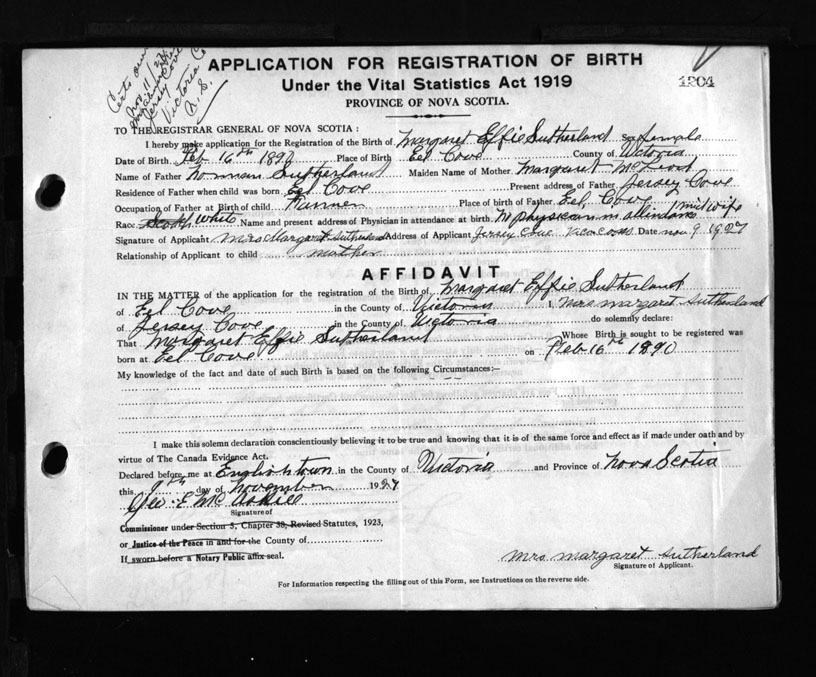 Certs
Nov 11/27
Jersey Cove
Victoria Co
N. S.
APPLICATION FOR REGISTRATION OF BIRTH
1904
Under the Vital Statistics Act 1919
PROVINCE OF NOVA SCOTIA.
TO THE REGISTRAR GENERAL OF NOVA SCOTIA:
I hereby make application for the Registration of the Birth of Margaret Effie Sutherland Sex female
Date of Birth Feb 16th 1890 Place of Birth Eel Cove County of Victoria
Name of Father Norman Sutherland Maiden Name of Mother Margaret
Residence of Father when child was born Eel Cove Present address of Father Jersey Cove
Occupation of Father at Birth of child Farmer Place of birth of Father Eel Cove 1 midwife
Race Scotch White Name and present address of Physician in attendance at birth No physician in attendance
Signature of Applicant Mrs Margaret Sutherland Address of Applicant Jersey Cove Date Nov 9 1927
Relationship of Applicant to child mother
AFFIDAVIT
IN THE MATTER of the application for the registration of the Birth of Margaret Effie Sutherland
of Eel Cove in the County of Victoria I, Mrs Margaret Sutherland
of Jersey Cove in the County of Victoria do solemnly declare:
That Margaret Effie Sutherland Whose Birth is sought to be registered was
born at Eel Cove on Feb 16th 1890
My knowledge of the fact and date of such Birth is based on the following Circumstances:—
I make this solemn declaration conscientiously believing it to be true and knowing that it is of the same force and effect as if made under oath and by
virtue of The Canada Evidence Act.
Declared before me at Englishtown in the County of Victoria and Province of Nova Scotia
this 9th day of November 1927
Geo. E McAskill
Signature of
Commissioner under Section 3, Chapter 38, Revised Statutes, 1923,
or Justice of the Peace in and for the County of
If sworn before a Notary Public affix seal.
Mrs Margaret Sutherland
Signature of Applicant.
For Information respecting the filling out of this Form, see Instructions on the reverse side.